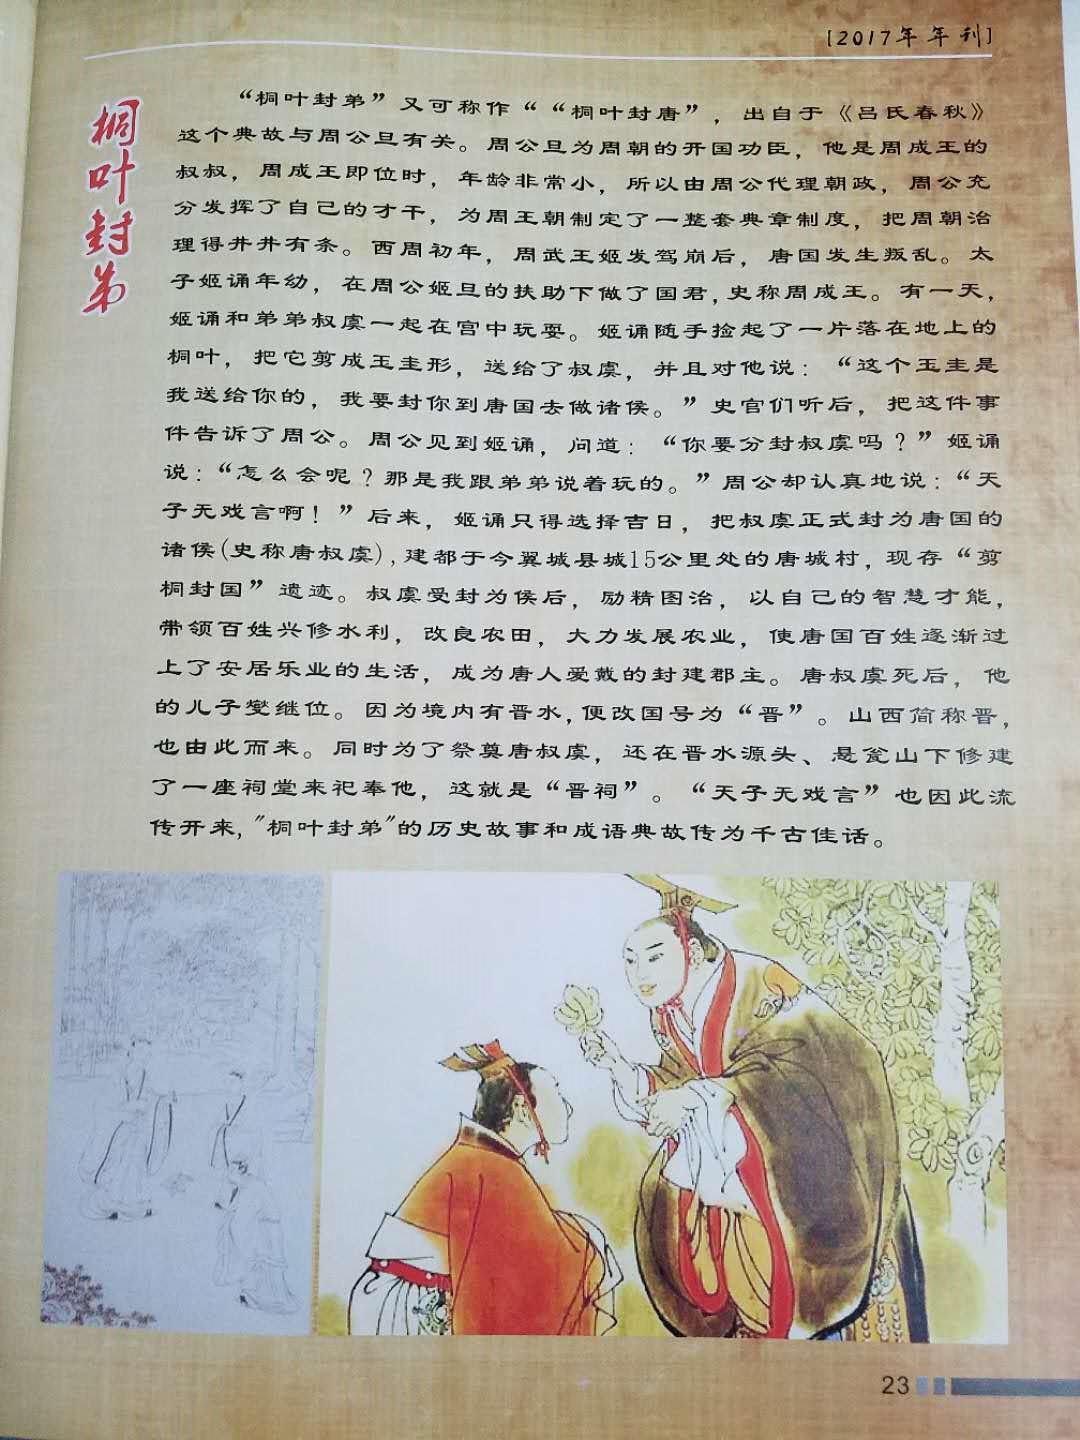 [2017年年刊]
桐叶封弟
“桐叶封弟”又可称作““桐叶封唐”，出自于《吕氏春秋》
这个典故与周公旦有关。周公旦为周朝的开国功臣，他是周成王的
叔叔，周成王即位时，年龄非常小，所以由周公代理朝政，周公充
分发挥了自己的才干，为周王朝制定了一整套典章制度，把周朝治
理得井井有条。西周初年，周武王姬发驾崩后，唐国发生叛乱。太
子姬诵年幼，在周公姬旦的扶助下做了国君,史称周成王。有一天，
姬诵和弟弟叔虞一起在宫中玩耍。姬诵随手捡起了一片落在地上的
桐叶，把它剪成玉圭形，送给了叔虞，并且对他说：“这个玉圭是
我送给你的，我要封你到唐国去做诸侯。”史官们听后，把这件事
件告诉了周公。周公见到姬诵，问道：“你要分封叔虞吗？”姬诵
说：“怎么会呢？那是我跟弟弟说着玩的。”周公却认真地说：“天
子无戏言啊！”后来，姬诵只得选择吉日，把叔虞正式封为唐国的
诸侯(史称唐叔虞),建都于今翼城县城15公里处的唐城村，现存“剪
桐封国”遗迹。叔虞受封为侯后，励精图治，以自己的智慧才能，
带领百姓兴修水利，改良农田，大力发展农业，使唐国百姓逐渐过
上了安居乐业的生活，成为唐人爱戴的封建郡主。唐叔虞死后，他
的儿子燮继位。因为境内有晋水,便改国号为“晋”。山西简称晋，
也由此而来。同时为了祭奠唐叔虞，还在晋水源头、悬瓮山下修建
了一座祠堂来祀奉他，这就是“晋祠”。“天子无戏言”也因此流
传开来,"桐叶封弟"的历史故事和成语典故传为千古佳话。
23